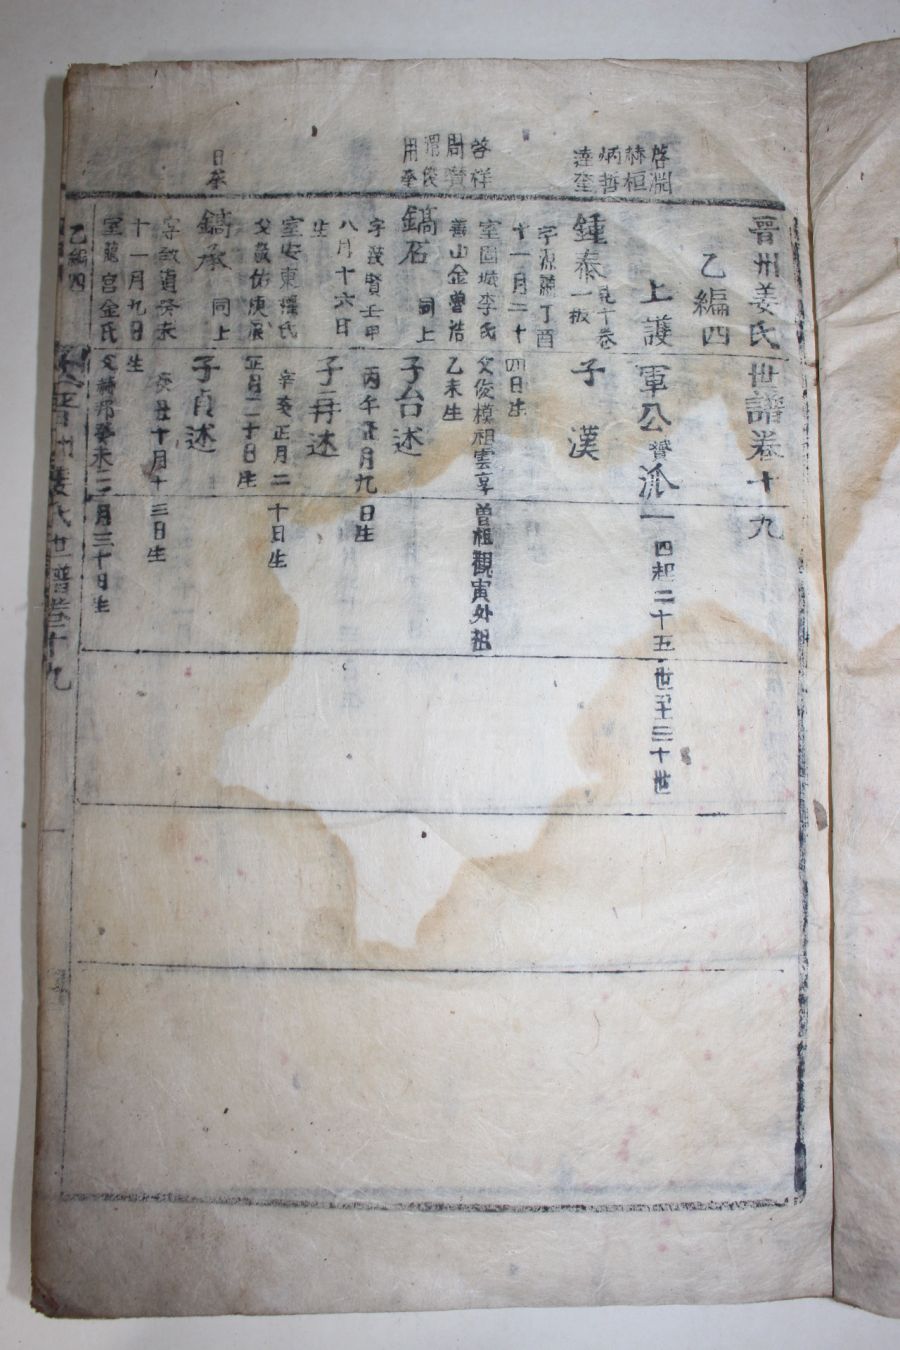 晉州姜氏世譜卷十九
乙編四
上護軍公贇派一 四起二十五世至三十世
啓淵
赫桓
炳哲
達奎
鍾泰 見十卷一板
字源 丁酉十一月二十四日生
室固城李氏 父俊模祖雲享曾祖觀寅外祖善山金曾浩
乙未生
子 漢
啓祥
周贊
渭俊
用奎
鎬石 同上
字 賢壬申八月十六日生
室安東權氏
父 佑庚辰正月二十日生
子台述
丙午正月九日生
子井述
辛亥正月二十日生
日奎
鎬承 同上
字敬 癸未十一月九日生
室龍宮金氏 父 邦癸未二月三十日生
子貞述
癸丑十月十三日生
乙編四
晉州姜氏世譜卷十九
一